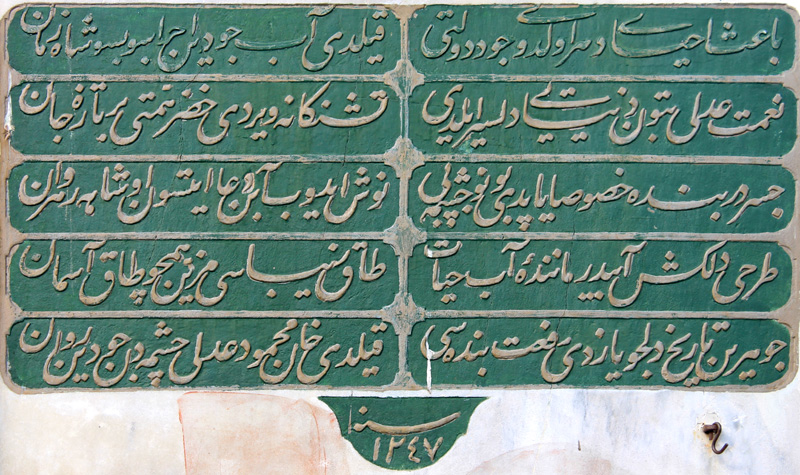 باعث احیای دهر اولدی وجود دولتی
قیلدی آب جودین اجرا سوبسو شاه زمان
نعمت عدلی بتون دنیای دلسیر ایلدی
تشنکانه ویردی خضر همتی بر تازه جان
جسر دربنده خصوصا یاپدی بو نو چشمه یی
نوش ایدوب آبن دعا ایتسون اوشاهه رهروان
طرحی دلکش آبیدر مانندهٔ آب حیات
طاق زیباسی مزین همچو طاق آسمان
جوهرین تاریخ دلجو یازدی رفعت بنده سی
قیلدی خان محمود عدلی چشمه دن جودین روان
سنه
١٢٤٧